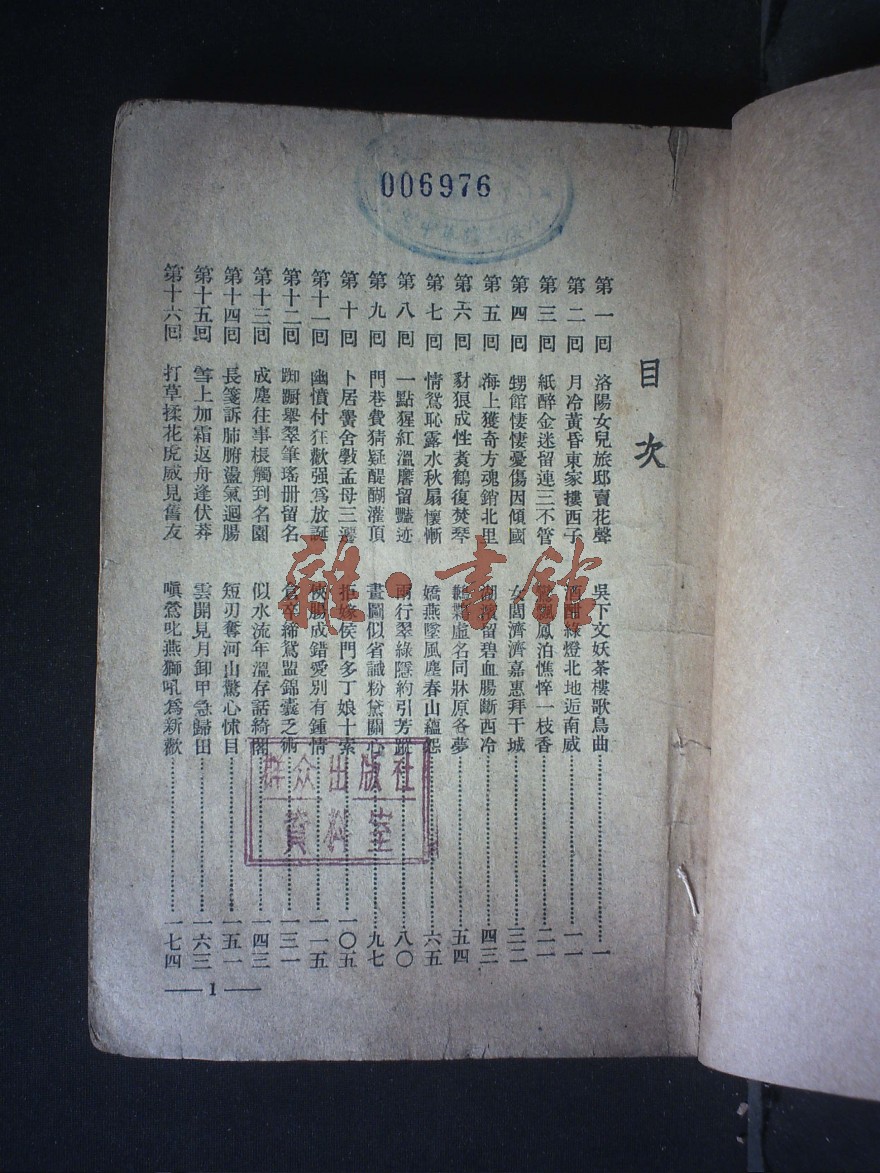 006976
目次
第一回 洛陽女兒旅邸賣花聲 吳下文妖茶樓歌鳥曲 一
第二回 月冷黃昏東家摟西子 酒酣綠燈北地近南威 一一
第三回 紙醉金迷留連三不管 鳳泊憔悴一枝香 二一
第四回 甥館悽悽憂傷因傾國 女閭濟濟嘉惠拜干城 三二
第五回 海上獲奇方魂銷北里 留碧血腸斷西泠 四三
第六回 豺狠成性煑鶴復焚琴 虛名同牀原各夢 五四
第七回 情鴛恥露水秋扇懷慚 嬌燕墜風塵春山蘊怨 六五
第八回 一點猩紅溫麐留豔迹 兩行翠綠隱約引芳蹤 八〇
第九回 門巷費猜疑醍醐灌頂 畫圖似省識粉黛關心 九七
第十回 卜居黌舍斆孟母三遷 拒嫁侯門多丁娘十索 一〇五
第十一回 幽憤付狂歡强爲放誕 俠腸成錯愛別有鍾情 一一五
第十二回 踟躕舉翠筆瑤册留名 倉卒締鴛盟錦囊乏術 一三一
第十三回 成塵往事棖觸到名園 似水流年溫存話綺閣 一四三
第十四回 長箋訴肺腑盪氣迴腸 短刃奪河山驚心怵目 一五一
第十五回 雪上加霜返舟逢伏莽 雲開見月卸甲急歸田 一六三
第十六回 打草揉花虎威見舊友 嗔鶯叱燕獅吼爲新歡 一七四
群众出版社
資料室
雜·書館
1